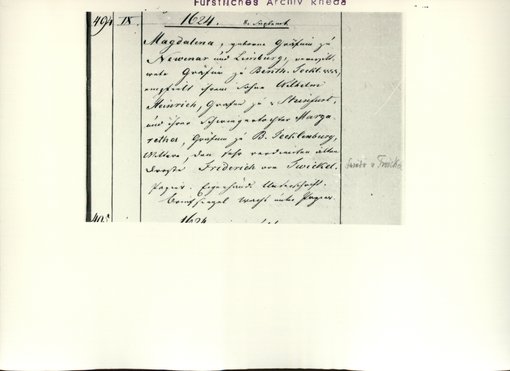 Fürstliches Archiv Rheda
494 IX. 1624. 8. Septemb
Magdalena, geborne Gräfin zu
Newenar und Limburg, verwitt-
wete Gräfin zu Benth. Teckl.
empfielt ihrem Sohne Wilhelm
Heinrich, Grafen zu Steinfurt,
und ihrer Schwiegertochter Marga
retha, Gräfin zu B. Tecklenburg,
Wittwe, den sehr verdienten alten
Droste Friderich von Twickel.
Papier. Eigenhänd. Unterschrift.
Briefsiegel Wachs unter Papier.
1624